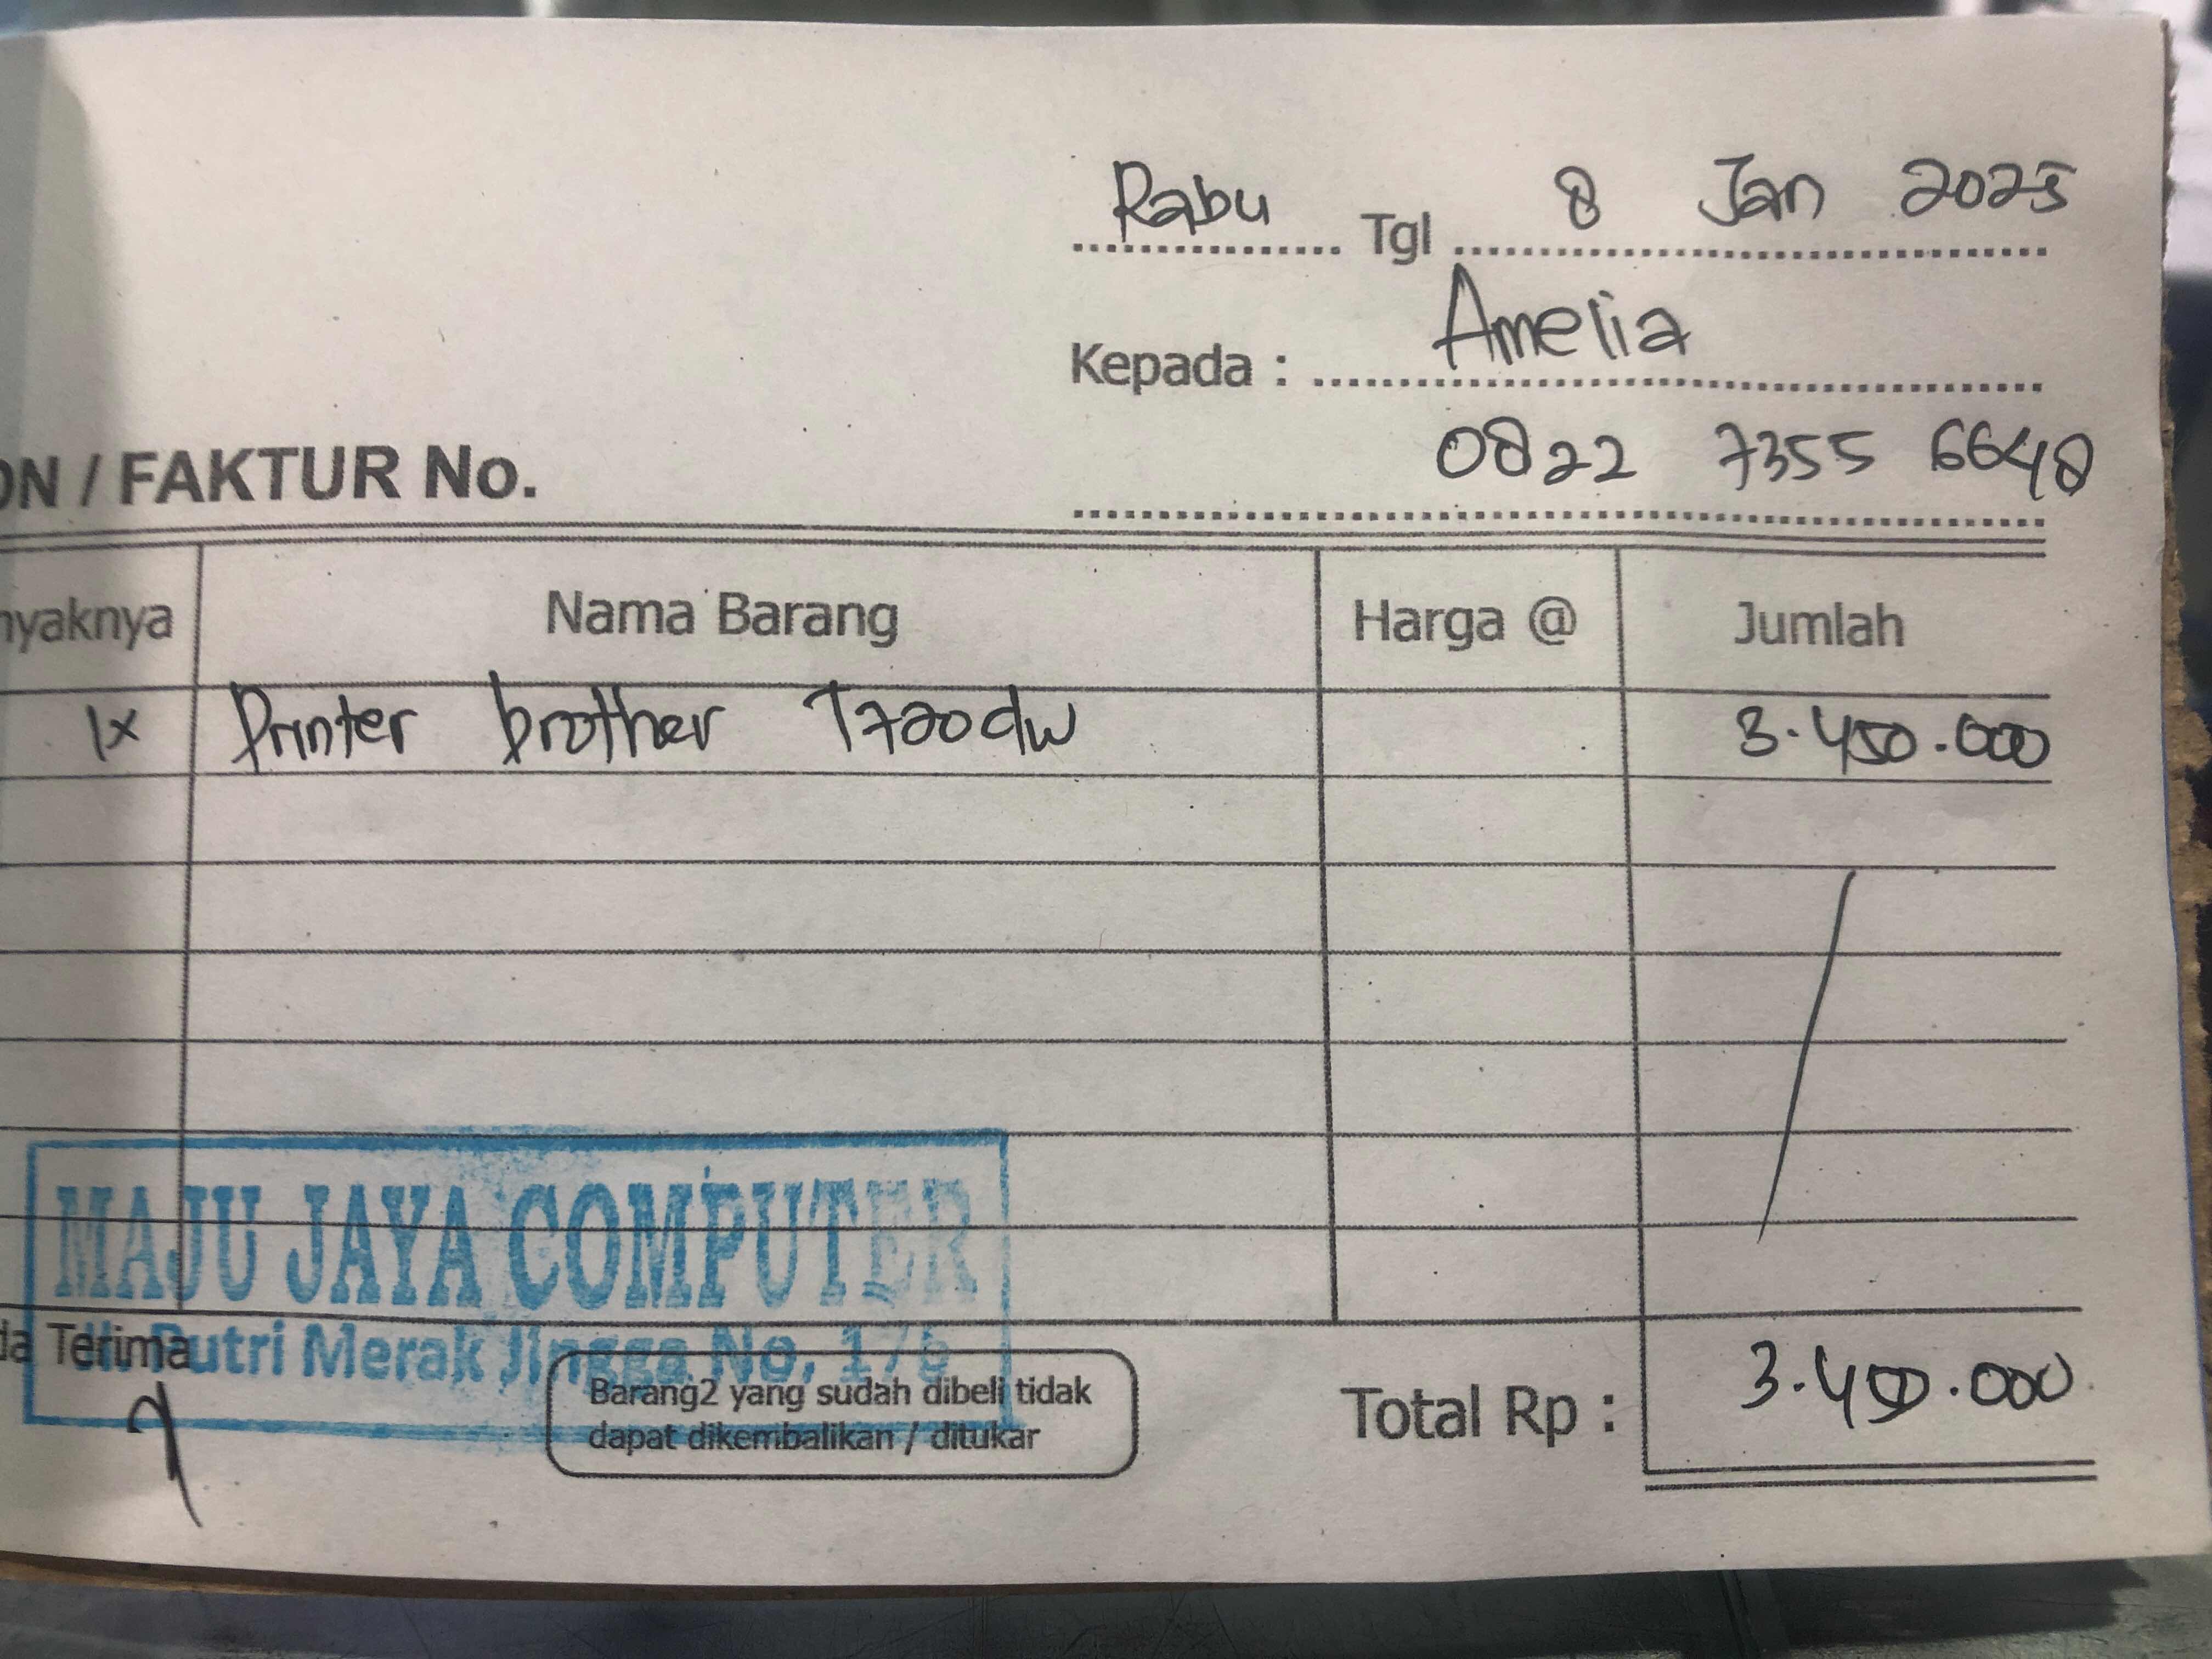 Rabu Tgl 8 Jan 2025
Kepada : Amelia
0822 7355 6648
ON / FAKTUR No.
nyaknya Nama Barang Harga @ Jumlah
1x Printer brother T720dw 3.450.000
MAJU JAYA COMPUTER
da Terima
Jl. Putri Merak Jingga No. 17b
Barang2 yang sudah dibeli tidak
dapat dikembalikan / ditukar
Total Rp : 3.450.000